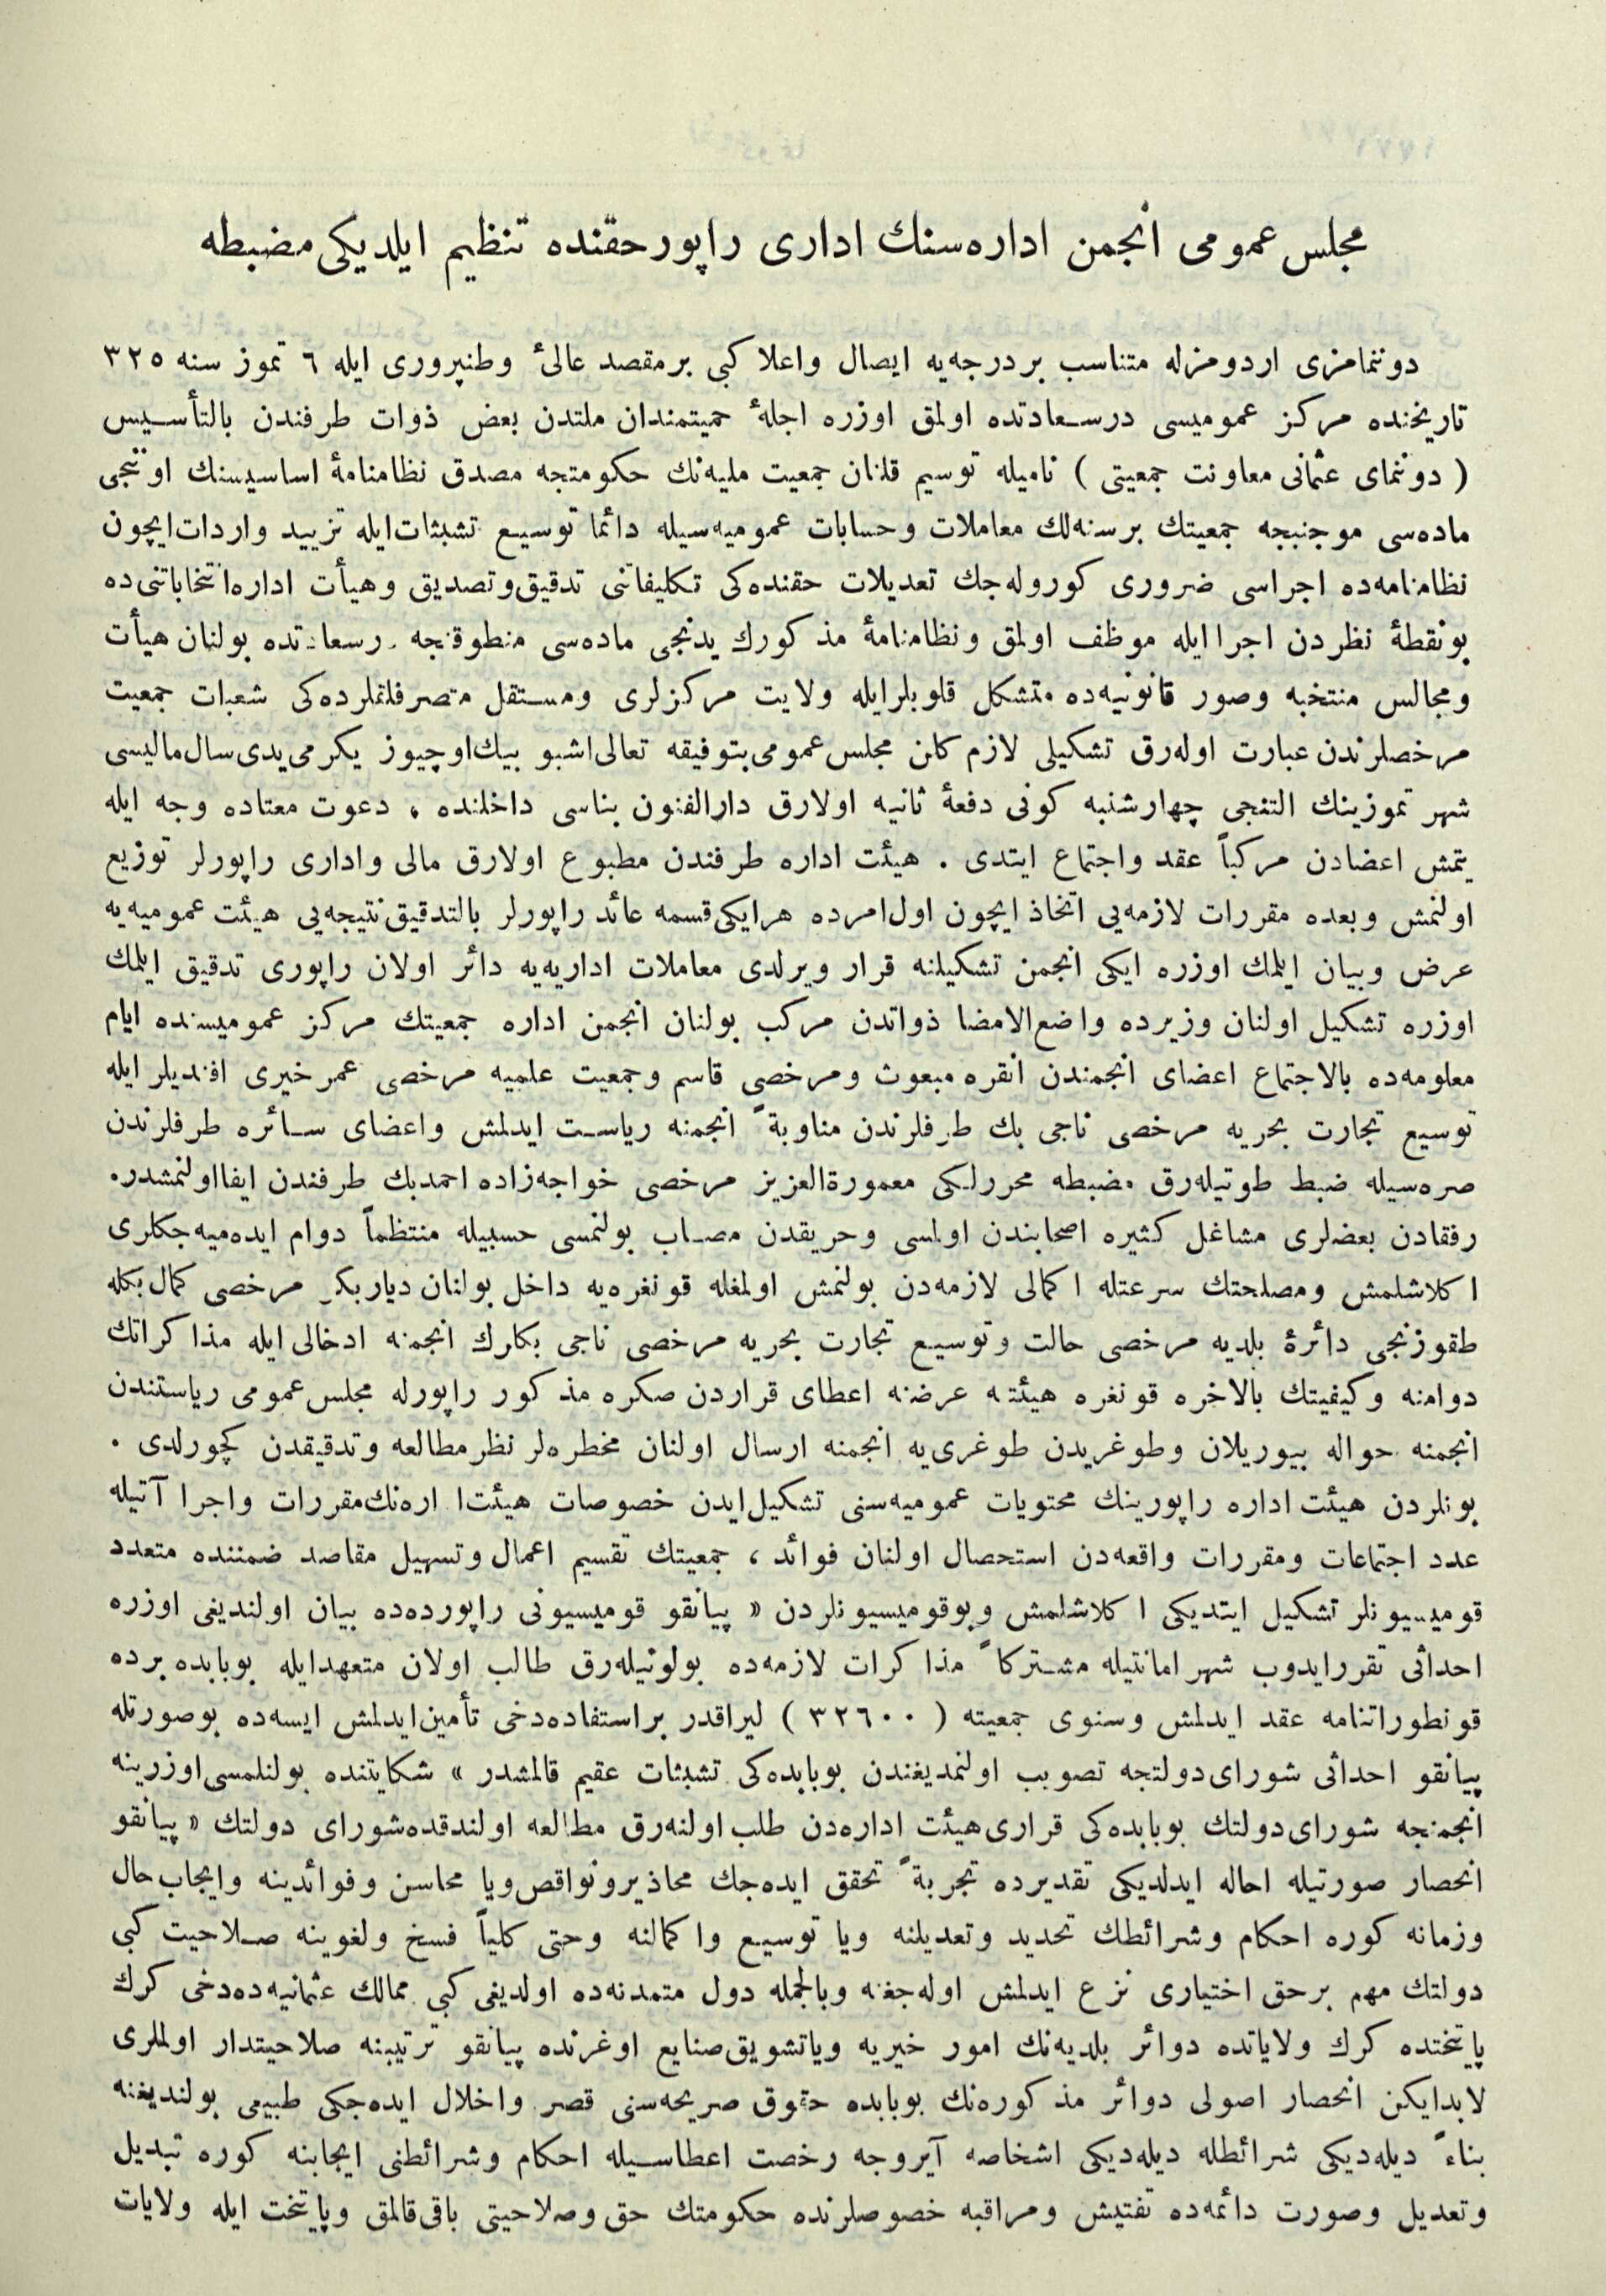 مجلس عمومی انجمن اداره‌سنك اداری راپور حقنده تنظیم ایلدیکی مضبطه
دوننمامزی اردومزله متناسب بر درجه‌یه ایصال واعلا کبی بر مقصد عالیٔ وطنپروری ایله ٦ تموز سنه ٣٢٥
تاریخنده مرکز عمومیسی درسعادتده اولمق اوزره اجلهٔ حمیتمندان ملتدن بعض ذوات طرفندن بالتأسیس
( دوننمای عثمانی معاونت جمعیتی ) نامیله توسیم قلنان جمعیت ملیه‌نك حکومتجه مصدق نظامنامهٔ اساسیسنك اوننجی
ماده‌سی موجنبجه جمعیتك برسنه‌لك معاملات وحسابات عمومیه‌سیله دائما توسیع تشبثات‌ایله تزیید واردات‌ایچون
نظامنامه‌ده اجراسی ضروری کوروله‌جك تعدیلات حقنده‌کی تکلیفاتنی تدقیق‌وتصدیق وهیأت اداره‌انتخاباتنی‌ده
بونقطهٔ نظردن اجرا ایله موظف اولمق ونظامنامهٔ مذکورك یدنجی ماده‌سی منطوقنجه رسعادتده بولنان هیأت
ومجالس منتخبه وصور قانونیه‌ده متشکل قلوبلرایله ولایت مرکزلری ومستقل متصرفلقلرده‌کی شعبات جمعیت
مرخصلرندن عبارت اوله‌رق تشکیلی لازم کلن مجلس عمومی بتوفیقه تعالی‌اشبو بیك‌اوچیوز یکرمی‌یدی‌سال‌مالیسی
شهر تموزینك التنجی چهارشنبه کونی دفعهٔ ثانیه اولارق دارالفنون بناسی داخلنده ، دعوت معتاده وجه ایله
یتمش اعضادن مرکباً عقد واجتماع ایتدی . هیئت اداره طرفندن مطبوع اولارق مالی واداری راپورلر توزیع
اولنمش وبعده مقررات لازمه‌یی اتخاذ ایچون اول‌امرده هرایکی‌قسمه عائد راپورلر بالتدقیق‌نتیجه‌یی هیئت عمومیه‌یه
عرض وبیان ایلمك اوزره ایکی انجمن تشکیلنه قرار ویرلدی معاملات اداریه‌یه دائر اولان راپوری تدقیق ایلمك
اوزره تشکیل اولنان وزیرده واضع‌الامضا ذواتدن مرکب بولنان انجمن اداره جمعیتك مرکز عمومیسنده ایام
معلومه‌ده بالاجتماع اعضای انجمندن انقره مبعوث ومرخصی قاسم وجمعیت علمیه مرخصی عمر خیری افندیلر ایله
توسیع تجارت بحریه مرخصی ناجی بك طرفلرندن مناوبةً انجمنه ریاست ایدلمش واعضای سائره طرفلرندن
صره‌سیله ضبط طوتیله‌رق مضبطه محررلکی معمورة‌العزیز مرخصی خواجه‌زاده احمدبك طرفندن ایفااولنمشدر.
رفقادن بعضلری مشاغل کثیره اصحابندن اولمسی وحریقدن مصاب بولنمسی حسبیله منتظماً دوام ایده‌میه‌جکلری
اکلاشلمش ومصلحتك سرعتله اکمالی لازمه‌دن بولنمش اولمغله قونغره‌یه داخل بولنان دیاربکر مرخصی کمال‌بکله
طقوزنجی دائرهٔ بلدیه مرخصی حالت وتوسیع تجارت بحریه مرخصی ناجی بکلرك انجمنه ادخالی ایله مذاکراتك
دوامنه وکیفیتك بالاخره قونغره هیئتنه عرضنه اعطای قراردن صکره مذکور راپورله مجلس عمومی ریاستندن
انجمنه حواله بیوریلان وطوغریدن طوغری‌یه انجمنه ارسال اولنان مخطره‌لر نظر مطالعه وتدقیقدن کچورلدی .
بونلردن هیئت اداره راپورینك محتویات عمومیه‌سنی تشکیل‌ایدن خصوصات هیئت‌ا اره‌نك‌مقررات واجرا آتیله
عدد اجتماعات ومقررات واقعه‌دن استحصال اولنان فوائد ، جمعیتك تقسیم اعمال وتسهیل مقاصد ضمننده متعدد
قومیسیونلر تشکیل ایتدیکی اکلاشلمش وبوقومیسیونلردن « پیانقو قومیسیونی راپورده‌ده بیان اولندیغی اوزره
احداثی تقررایدوب شهر امانتیله مشترکاً مذاکرات لازمه‌ده بولونیله‌رق طالب اولان متعهدایله بوبابده برده
قونطوراتنامه عقد ایدلمش وسنوی جمعیته ( ٣٢٦٠٠ ) لیراقدر براستفاده‌دخی تأمین‌ایدلمش ایسه‌ده بوصورتله
پیانقو احداثی شورای‌دولتجه تصویب اولنمدیغندن بوبابده‌کی تشبثات عقیم قالمشدر » شکایتنده بولنلمسی‌اوزرینه
انجمنجه شورای‌دولتك بوبابده‌کی قراری‌هیئت اداره‌دن طلب‌اولنه‌رق مطالعه اولندقده‌شورای دولتك « پیانقو
انحصار صورتیله احاله ایدلدیکی تقدیرده تجربةً تحقق ایده‌جك محاذیرونواقص‌ویا محاسن وفوائدینه وایجاب‌حال
وزمانه کوره احکام وشرائطك تحدید وتعدیلنه ویا توسیع واکمالنه وحتی کلیاً فسخ ولغوینه صلاحیت کبی
دولتك مهم برحق اختیاری نزع ایدلمش اوله‌جغنه وبالجمله دول متمدنه‌ده اولدیغی کبی ممالك عثمانیه‌ده‌دخی کرك
پایتختده کرك ولایاتده دوائر بلدیه‌نك امور خیریه ویاتشویق‌صنایع اوغرنده پیانقو ترتیبنه صلاحیتدار اولملری
لابدایکن انحصار اصولی دوائر مذکوره‌نك بوبابده حقوق صریحه‌سنی قصر واخلال ایده‌جکی طبیعی بولندیغنه
بناءً دیله‌دیکی شرائطله دیله‌دیکی اشخاصه آیروجه رخصت اعطاسیله احکام وشرائطنی ایجابنه کوره تبدیل
وتعدیل وصورت دائمه‌ده تفتیش ومراقبه خصوصلرنده حکومتك حق وصلاحیتی باقی‌قالمق وپایتخت ایله ولایات